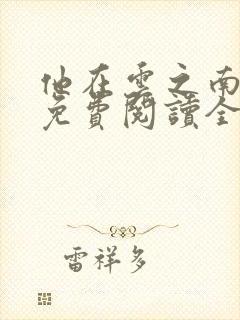 他在雲之南
免費閱讀全
雷祥多